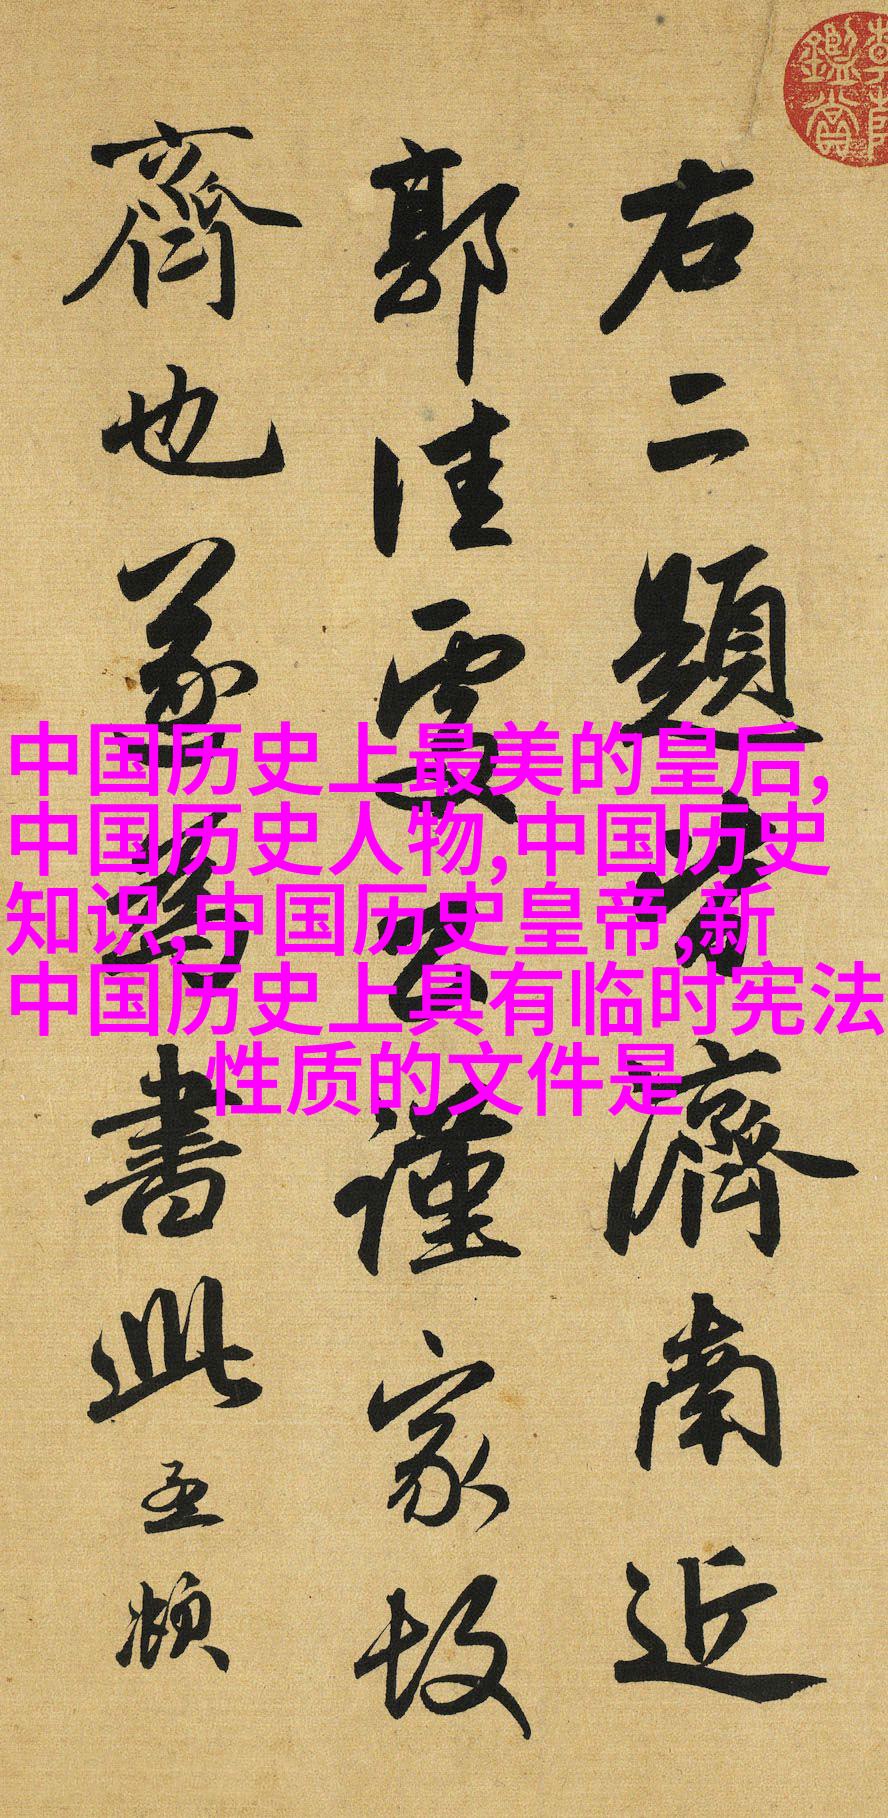 右二題皆濟南近
郭佳處公謹家故
齊也遂為書此孟頫
中国历史上最美的皇后,
中国历史人物,中国历史
知识,中国历史皇帝,新
中国历史上具有临时宪法
性质的文件是